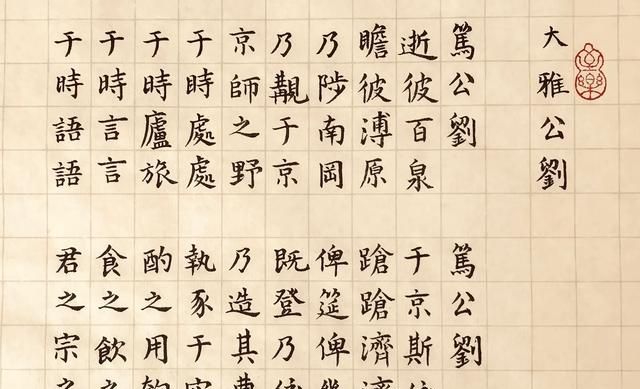 大雅公劉
篤公劉
逝彼百泉
瞻彼溥原
乃陟南岡
乃覯于京
京師之野
于時處處
于時廬旅
于時言言
于時語語
篤公劉
于京斯
蹌蹌濟
俾筵俾
既登乃
乃造其
執豕于
酌之用
食之飲
君之宗